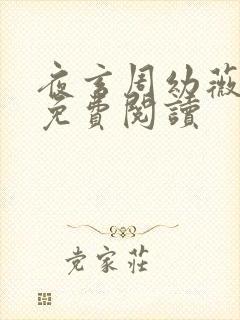 夜言周幼薇
免費閱讀
党家莊